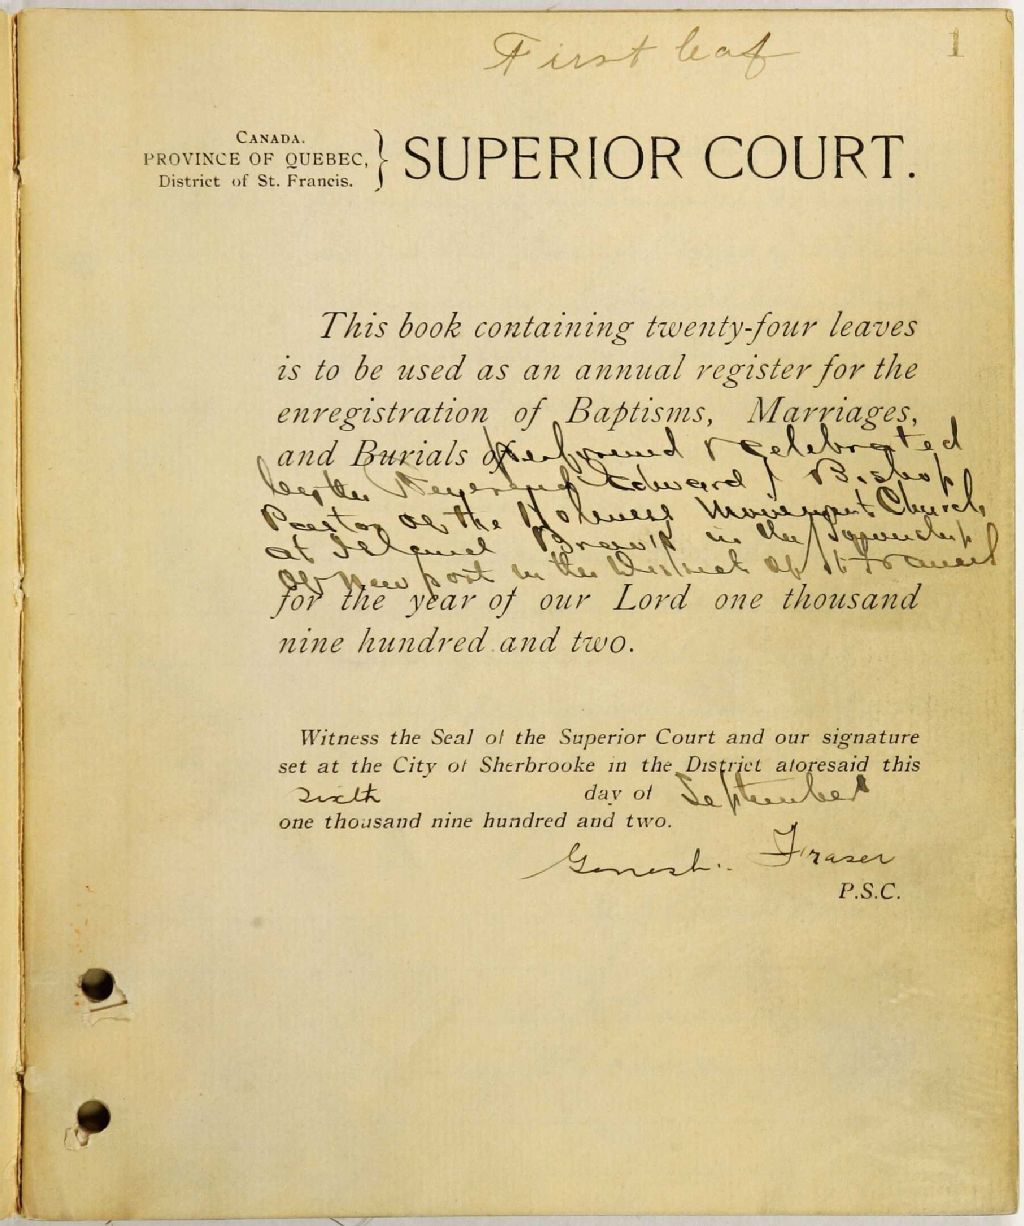 First leaf
1
CANADA.
PROVINCE OF QUEBEC,
District of St. Francis.
SUPERIOR COURT.
This book containing twenty-four leaves
is to be used as an annual register for the
enregistration of Baptisms, Marriages,
and Burials performed & celebrated
by the Reverend Edward J Bishop
Pastor of the Holiness Movement Church
at Island Brook in the Township
of Newport in the District of St Francis
for the year of our Lord one thousand
nine hundred and two.
Witness the Seal of the Superior Court and our signature
set at the City of Sherbrooke in the District aforesaid this
sixth day of September
one thousand nine hundred and two.
Fraser
P.S.C.